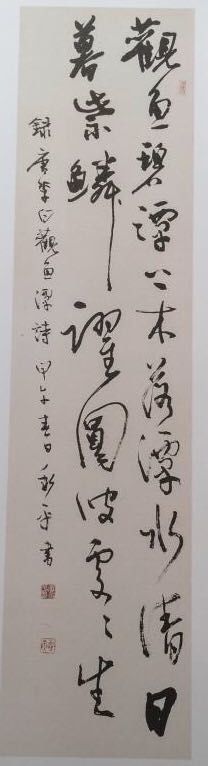 觀魚碧潭上木落潭水清日
暮紫鱗躍圓波處〻生
錄唐李白觀魚潭詩 甲午春日 書